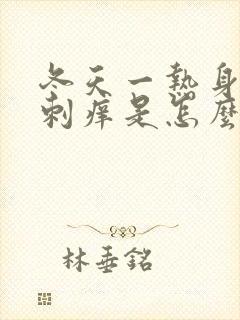 冬天一熱身
刺痒是怎麼
林垂銘